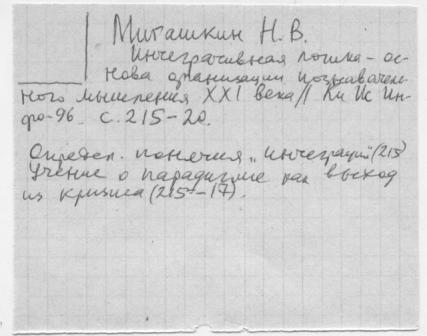 Миташкин Н. В.
Интегративная логика – ос-
нова организации познавател-
ного мышления XXI века //
фо-96 с. 215–20.
Определ. понятия „интеграция" (215)
Учение о парадигме как выход
из кризиса (215–17).